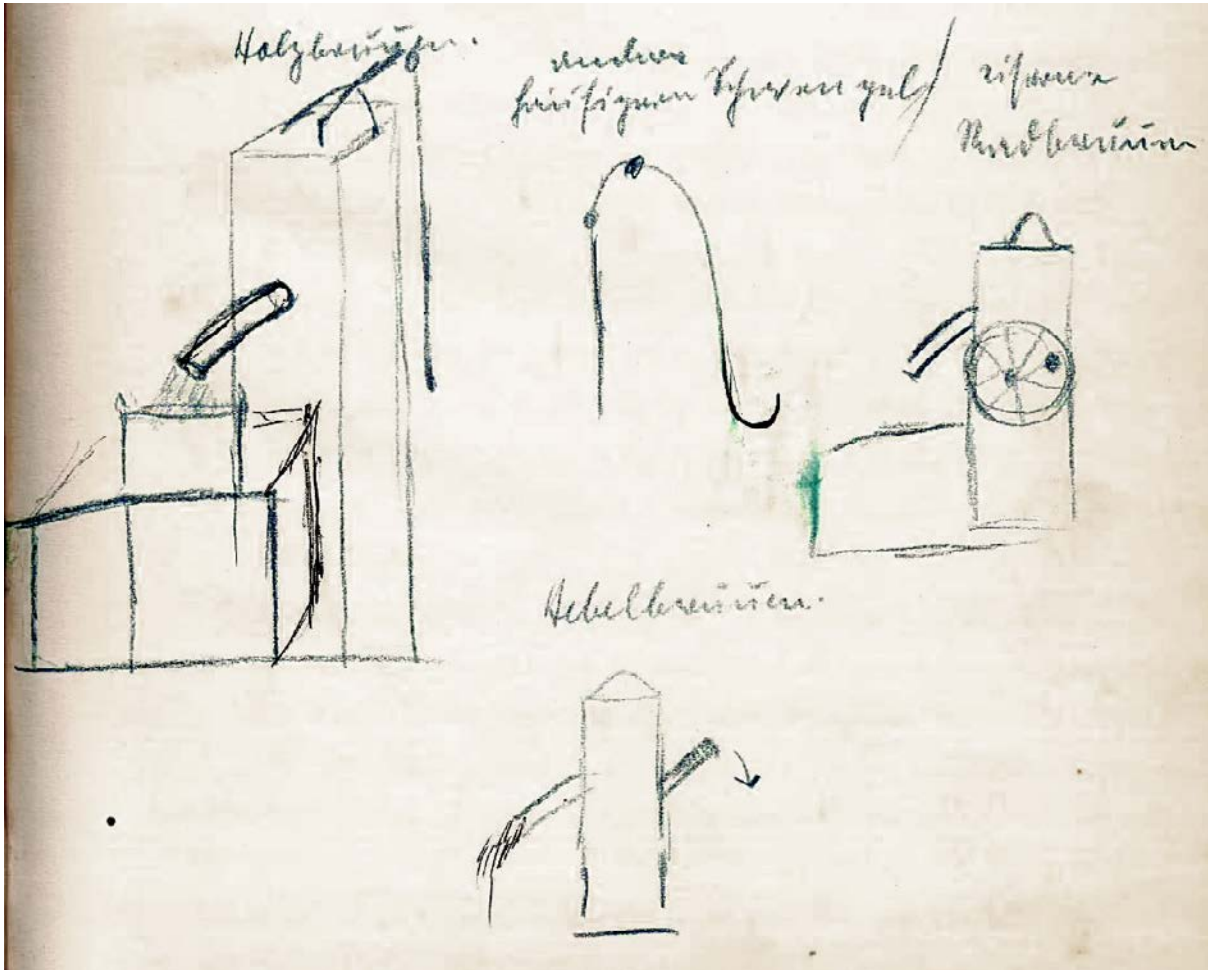 Holzbrunnen.
andere
häufigere Schwengel /
eiserne
Radbrunnen
Hebelbrunnen.